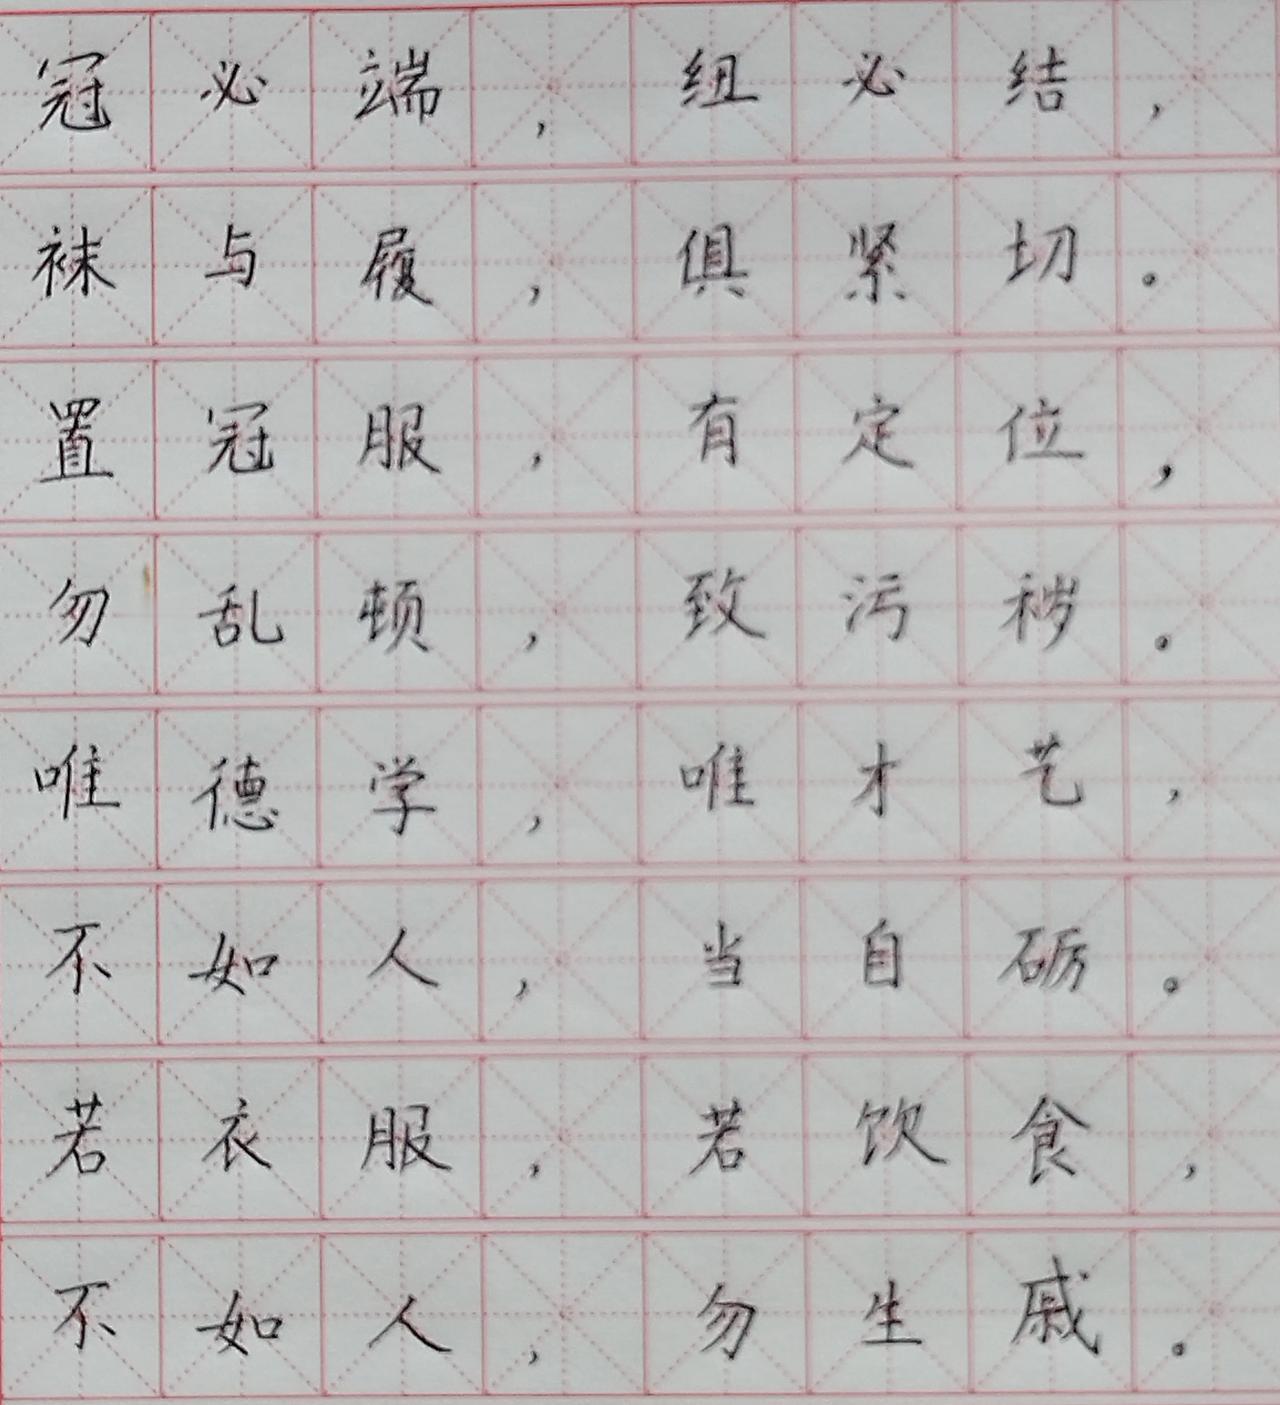 冠必端，纽必结，
袜与履，俱紧切。
置冠服，有定位，
勿乱顿，致污秽。
唯德学，唯才艺，
不如人，当自砺。
若衣服，若饮食，
不如人，勿生戚。